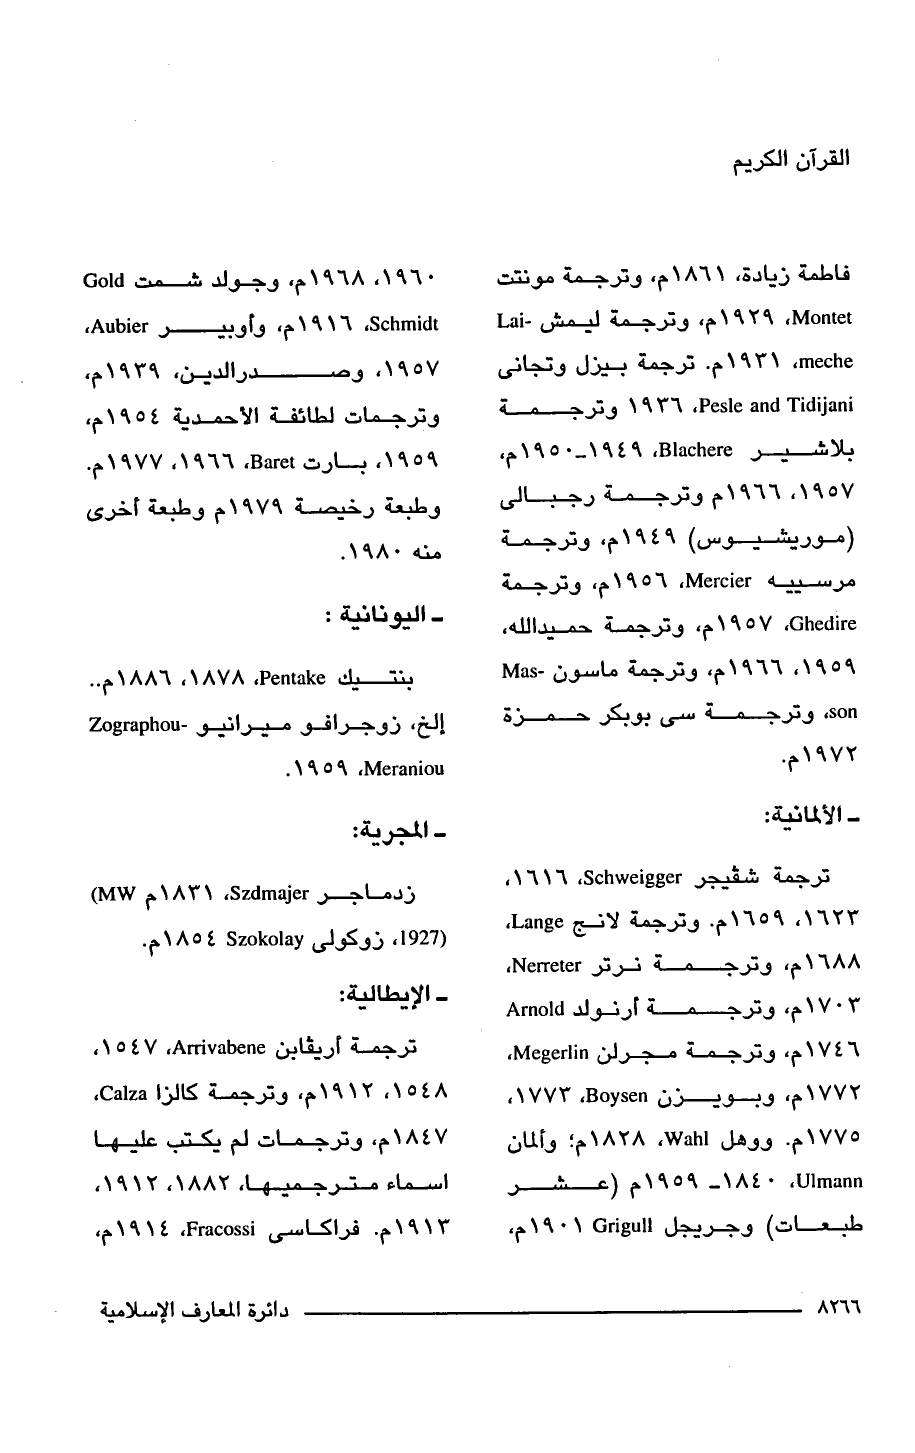 القرآن الكريم
فاطمة زيادة، ١٨٦١م، وترجمة مونتت
Montet، ١٩٢٩م، وترجمة ليمش Lai-
meche، ١٩٣١م. ترجمة بيزل وتجانى
Pesle and Tidijani، ١٩٣٦ وترجمة
بلاشير Blachere، ١٩٤٩ـ١٩٥٠م،
١٩٥٧، ١٩٦٦م وترجمة رجبالى
(موريشيوس) ١٩٤٩م، وترجمة
مرسييه Mercier، ١٩٥٦م، وترجمة
Ghedire، ١٩٥٧م، وترجمة حميدالله،
١٩٥٩، ١٩٦٦م، وترجمة ماسون Mas-
son، وترجمة سى بوبكر حمزة
١٩٧٢م.
ـ الألمانية:
ترجمة شڤيجر Schweigger، ١٦١٦،
١٦٢٣، ١٦٥٩م. وترجمة لانج Lange،
١٦٨٨م، وترجمة نرتر Nerreter،
١٧٠٣م، وترجمة أرنولد Arnold
١٧٤٦م، وترجمة مجرلن Megerlin،
١٧٧٢م، وبويزن Boysen، ١٧٧٣،
١٧٧٥م. ووهل Wahl، ١٨٢٨م؛ وألمان
Ulmann، ١٨٤٠ـ ١٩٥٩م (عشر
طبعات) وجريجل Grigull ١٩٠١م،
١٩٦٠، ١٩٦٨م، وجولد شمت Gold
Schmidt، ١٩١٦م، وأوبير Aubier،
١٩٥٧، وصدرالدين، ١٩٣٩م،
وترجمات لطائفة الأحمدية ١٩٥٤م،
١٩٥٩، بارت Baret، ١٩٦٦، ١٩٧٧م.
وطبعة رخيصة ١٩٧٩م وطبعة أخرى
منه ١٩٨٠.
ـ اليونانية :
بنتيك Pentake، ١٨٧٨، ١٨٨٦م..
إلخ، زوجرافو ميرانيو Zographou-
Meraniou، ١٩٥٩.
ـ المجرية:
زدماجر Szdmajer، ١٨٣١م (MW
1927)، زوكولى Szokolay ١٨٥٤م.
ـ الإيطالية:
ترجمة أريڤابن Arrivabene، ١٥٤٧،
١٥٤٨، ١٩١٢م، وترجمة كالزا Calza،
١٨٤٧م، وترجمات لم يكتب عليها
اسماء مترجميها، ١٨٨٢، ١٩١٢،
١٩١٣م. فراكاسى Fracossi، ١٩١٤م،
٨٢٦٦ دائرة المعارف الإسلامية